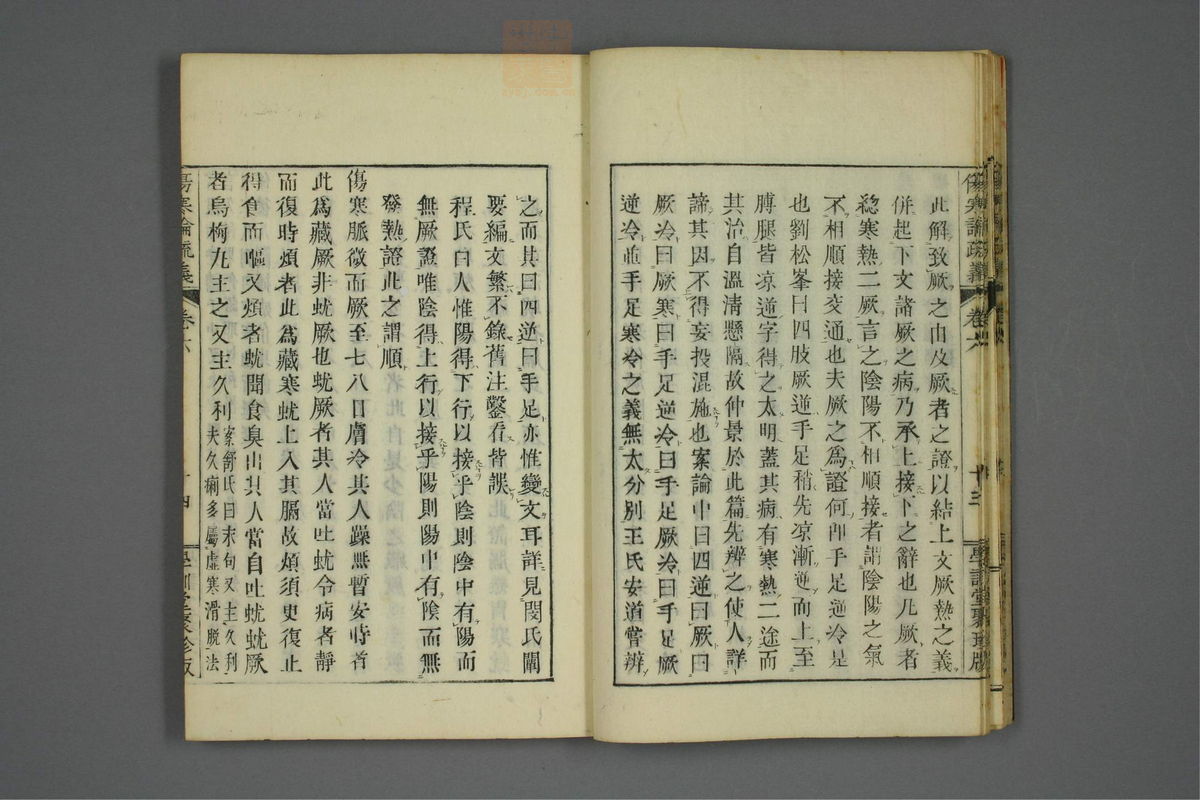 傷寒論疏義 卷六 十三 學訓堂聚珍版
此解致厥之由及厥者之證以結上文厥熱之義
併起下文諸厥之病乃承上接下之辭也凡厥者
總寒熱二厥言之陰陽不相順接者謂陰陽之氣
不相順接交通也夫厥之爲證何卽手足逆冷是
也劉松峯曰四肢厥逆手足稍先凉漸逆而上至
膊腿皆凉逆字得之太明蓋其病有寒熱二途而
其治自溫清懸隔故仲景於此篇先辨之使人詳
諦其因不得妄投混施也案論中曰四逆曰厥曰
厥冷曰厥寒曰手足逆冷曰手足厥冷曰手足厥
逆冷並手足寒冷之義無太分別王氏安道嘗辨
之而其曰四逆曰手足亦惟變文耳詳見閔氏闡
要編文繁不錄舊注鑿看皆誤
程氏曰人惟陽得下行以接乎陰則陰中有陽而
無厥證唯陰得上行以接乎陽則陽中有陰而無
發熱證此之謂順
傷寒脈微而厥至七八日膚冷其人躁無暫安時者
此爲藏厥非蚘厥也蚘厥者其人當吐蚘令病者靜
而復時煩者此爲藏寒蚘上入其膈故煩須臾復止
得食而嘔又煩者蚘聞食臭出其人當自吐蚘蚘厥
者烏梅丸主之又主久利
案舒氏曰末句又主久利
夫久痢多屬虛寒滑脫法
傷寒論疏義 卷六 十四 學訓堂聚珍版